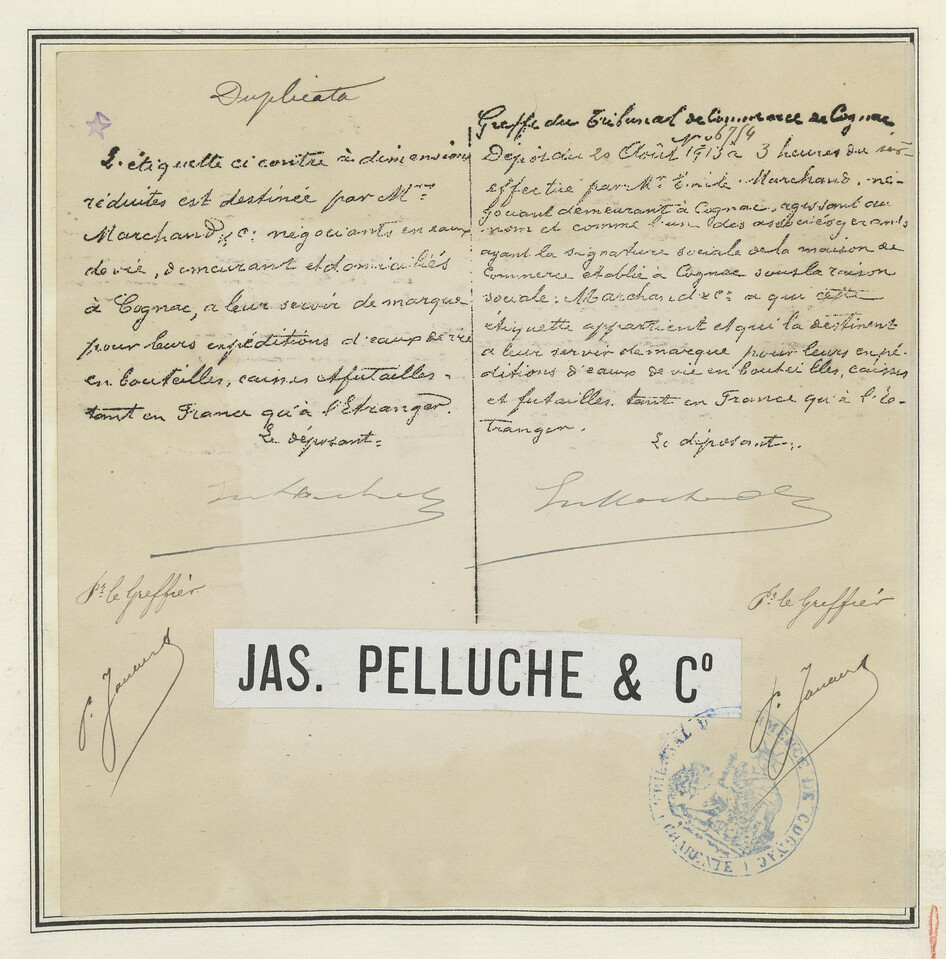 Duplicata
L'étiquette ci contre à dimensions
réduites est destinée par Mrs
Marchand & Cie négociants en eaux
de vie, demeurant et domiciliés
à Cognac, a leur servir de marque
pour leurs expéditions d'eaux de vie
en bouteilles, caisses et futailles
tant en France qu'à l'Etranger.
Le déposant:
Pr le Greffier
Greffe du Tribunal de Commerce de Cognac
No 6714
Dépôt du 20 Août 1913 à 3 heures du soir
effectué par Mr Emile Marchand, né-
gociant demeurant à Cognac, agissant au
nom et comme l'un des associés gérants
ayant la signature sociale de la maison de
Commerce établie à Cognac sous la raison
sociale: Marchand & Cie a qui cette
étiquette appartient et qui la destinent
a leur servir de marque pour leurs expé-
ditions d'eaux de vie en bouteilles, caisses
et futailles tant en France qu'à l'é-
tranger.
Le déposant:
Pr le Greffier
JAS. PELLUCHE & Co
TRIBUNAL DE COMMERCE DE COGNAC
CHARENTE